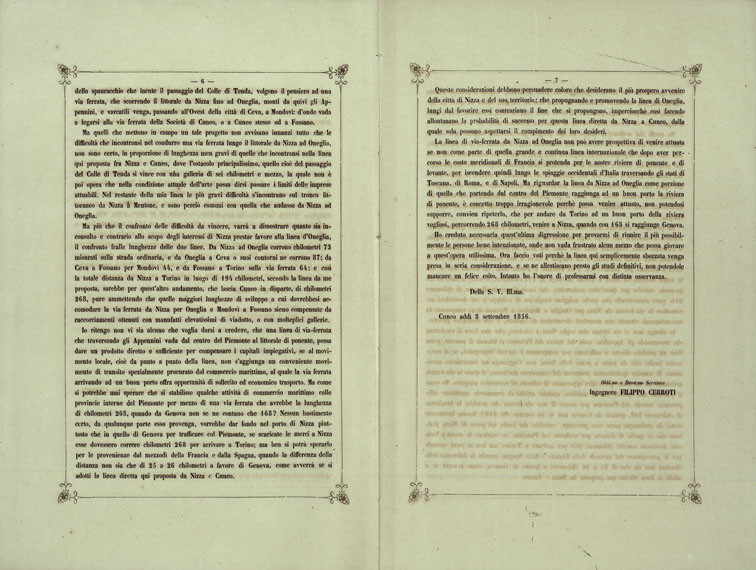 — 6 —
dello spauracchio che incute il passaggio del Colle di Tenda, volgono il pensiero ad una
via ferrata, che scorrendo il littorale da Nizza fino ad Oneglia, monti da quivi gli Ap-
pennini, e varcatili venga, passando all'Ovest della città di Ceva, a Mondovì d'onde vada
a legarsi alla via ferrata della Società di Cuneo, o a Cuneo stesso od a Fossano.
Ma quelli che mettono in campo un tale progetto non avvisano innanzi tutto che le
difficoltà che incontrensi nel condurre una via ferrata lungo il littorale da Nizza ad Oneglia,
non sono certo, in proporzione di lunghezza men gravi di quelle che incontrensi nella linea
qui proposta fra Nizza e Cuneo, dove l'ostacolo principalissimo, quello cioè del passaggio
del Colle di Tenda si vince con una galleria di sei chilometri e mezzo, la quale non è
poi opera che nella condizione attuale dell'arte possa dirsi passare i limiti delle imprese
attuabili. Nel restante della mia linea le più gravi difficoltà s'incontrano sul tronco lit-
toraneo da Nizza à Mentone, e sono perciò comuni con quella che andasse da Nizza ad
Oneglia.
Ma più che il confronto delle difficoltà da vincere, varrà a dimostrare quanto sia in-
consulto e contrario allo scopo degli interessi di Nizza prestar favore alla linea d'Oneglia,
il confronto fralle lunghezze delle due linee. Da Nizza ad Oneglia corrono chilometri 73
misurati sulla strada ordinaria, e da Oneglia a Ceva o suoi contorni ne corrono 87; da
Ceva a Fossano per Mondovì 44, e da Fossano a Torino sulla via ferrata 64: e così
la totale distanza da Nizza a Torino in luogo di 194 chilometri, secondo la linea da me
proposta, sarebbe per quest'altro andamento, che lascia Cuneo in disparte, di chilometri
268, pure ammettendo che quelle maggiori lunghezze di sviluppo a cui dovrebbesi ac-
comodare la via ferrata da Nizza per Oneglia e Mondovì a Fossano sieno compensate da
raccorciamenti ottenuti con manufatti elevatissimi di viadotto, o con molteplici gallerie.
Io ritengo non vi sia alcuno che voglia darsi a credere, che una linea di via-ferrata
che traversando gli Appennini vada dal centro del Piemonte al littorale di ponente, possa
dare un prodotto diretto e sufficiente per compensare i capitali impiegativi, se al movi-
mento locale, cioè da punto a punto della linea, non s'aggiunga un conveniente movi-
mento di transito spezialmente procurato dal commercio marittimo, al quale la via ferrata
arrivando ad un buon porto offra opportunità di sollecito ed economico trasporto. Ma come
si potrebbe mai sperare che si stabilisse qualche attività di commercio marittimo colle
provincie interne del Piemonte per mezzo di una via ferrata che avrebbe la lunghezza
di chilometri 268, quando da Genova non se ne contano che 168? Nessun bastimento
certo, da qualunque parte esso provenga, vorrebbe dar fondo nel porto di Nizza piut-
tosto che in quello di Genova per trafficare col Piemonte, se scaricate le merci a Nizza
esse dovessero correre chilometri 268 per arrivare a Torino; ma ben si potrà sperarlo
per le provenienze dal mezzodì della Francia e dalla Spagna, quando la differenza della
distanza non sia che di 25 a 26 chilometri a favore di Genova, come avverrà se si
adotti la linea diretta qui proposta da Nizza e Cuneo.
— 7 —
Queste considerazioni debbono persuadere coloro che desiderano il più prospero avvenire
della città di Nizza e del suo territorio; che propugnando e promovendo la linea di Oneglia,
lungi dal favorire essi contrariano il fine che si propongono, imperciocchè così facendo
allontanano la probabilità di successo per questa linea diretta da Nizza a Cuneo, dalla
quale sola possono aspettarsi il compimento dei loro desideri.
La linea di via-ferrata da Nizza ad Oneglia non può aver prospettiva di venire attuata
se non come parte di quella grande e continua linea internazionale che dopo aver per-
corso le coste meridionali di Francia si protenda per le nostre riviere di ponente e di
levante, per iscendere quindi lungo le spiagge occidentali d'Italia traversando gli stati di
Toscana, di Roma, e di Napoli. Ma riguardar la linea da Nizza ad Oneglia come porzione
di quella che partendo dal centro del Piemonte raggiunga ad un buon porto la riviera
di ponente, è concetto troppo irragionevole perchè possa venire attuato, non potendosi
sopporre, convien ripeterlo, che per andare da Torino ad un buon porto della riviera
vogliasi, percorrendo 268 chilometri, venire a Nizza, quando con 168 si raggiunge Genova.
Ho creduto necessaria quest'ultima digressione per provarmi di rimuovere il più possibil-
mente le persone bene intenzionate, onde non vada frustrato alcun mezzo che possa giovare
a quest'opera utilissima. Ora faccio voti perchè la linea qui semplicemente sbozzata venga
presa in seria considerazione, e se ne allestiscano presto gli studi definitivi, non potendole
mancare un felice esito. Intanto ho l'onore di professarmi con distinta osservanza.
Della S. V. Ill.ma.
Cuneo addì 8 settembre 1856.
Obbl.mo e Devot.mo Servitore
Ingegnere FILIPPO CERROTI